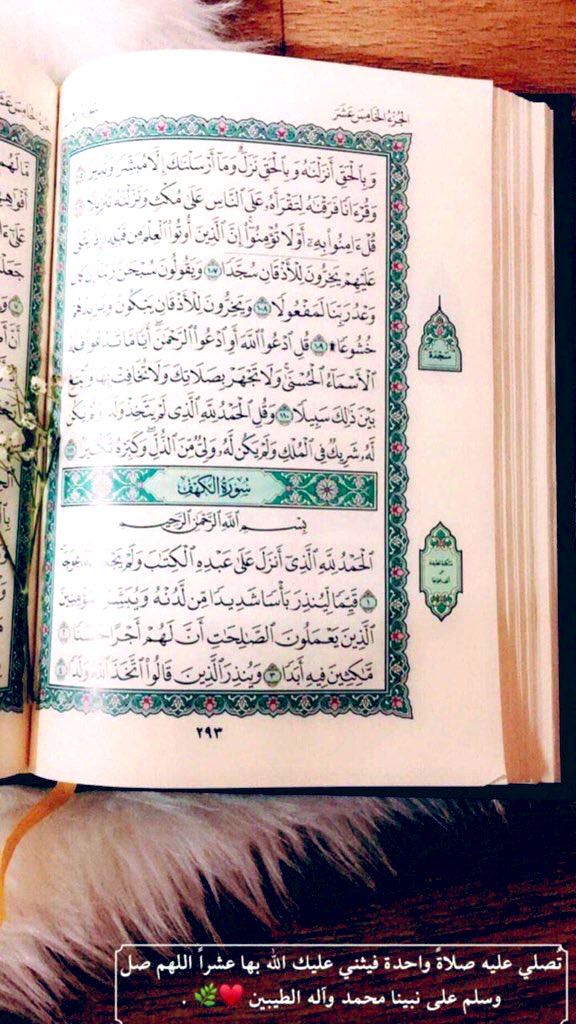 الجزء الخامس عشر
وَبِالْحَقِّ أَنزَلْنَٰهُ وَبِالْحَقِّ نَزَلَ وَمَا أَرْسَلْنَٰكَ إِلَّا مُبَشِّرًا وَنَذِيرًا
وَقُرْءَانًا فَرَقْنَٰهُ لِتَقْرَأَهُۥ عَلَى النَّاسِ عَلَىٰ مُكْثٍ وَنَزَّلْنَٰهُ تَنزِيلًا
قُلْ ءَامِنُوا۟ بِهِۦٓ أَوْ لَا تُؤْمِنُوٓا۟ إِنَّ الَّذِينَ أُوتُوا۟ الْعِلْمَ مِن قَبْلِهِۦٓ إِذَا
عَلَيْهِمْ يَخِرُّونَ لِلْأَذْقَانِ سُجَّدًا ١٠٧ وَيَقُولُونَ سُبْحَٰنَ رَبِّنَآ إِن كَانَ
وَعْدُ رَبِّنَا لَمَفْعُولًا ١٠٨ وَيَخِرُّونَ لِلْأَذْقَانِ يَبْكُونَ وَيَزِيدُهُمْ
خُشُوعًا ۩ ١٠٩ قُلِ ادْعُوا۟ اللَّهَ أَوِ ادْعُوا۟ الرَّحْمَٰنَ أَيًّا مَّا تَدْعُوا۟
الْأَسْمَآءُ الْحُسْنَىٰ وَلَا تَجْهَرْ بِصَلَاتِكَ وَلَا تُخَافِتْ بِهَا وَابْتَغِ
بَيْنَ ذَٰلِكَ سَبِيلًا ١١٠ وَقُلِ الْحَمْدُ لِلَّهِ الَّذِى لَمْ يَتَّخِذْ وَلَدًا وَلَمْ يَكُن
لَّهُۥ شَرِيكٌ فِى الْمُلْكِ وَلَمْ يَكُن لَّهُۥ وَلِىٌّ مِّنَ الذُّلِّ وَكَبِّرْهُ تَكْبِيرًا
سجدة
سُورَةُ الكَهْفِ
بِسْمِ اللَّهِ الرَّحْمَٰنِ الرَّحِيمِ
الْحَمْدُ لِلَّهِ الَّذِىٓ أَنزَلَ عَلَىٰ عَبْدِهِ الْكِتَٰبَ وَلَمْ يَجْعَل لَّهُۥ عِوَجَا
١ قَيِّمًا لِّيُنذِرَ بَأْسًا شَدِيدًا مِّن لَّدُنْهُ وَيُبَشِّرَ الْمُؤْمِنِينَ
الَّذِينَ يَعْمَلُونَ الصَّٰلِحَٰتِ أَنَّ لَهُمْ أَجْرًا حَسَنًا ٢
مَّٰكِثِينَ فِيهِ أَبَدًا ٣ وَيُنذِرَ الَّذِينَ قَالُوا۟ اتَّخَذَ اللَّهُ وَلَدًا ٤
٢٩٣
تُصلي عليه صلاةً واحدة فيثني عليك الله بها عشراً اللهم صل
وسلم على نبينا محمد وآله الطيبين ❤️🌿 .